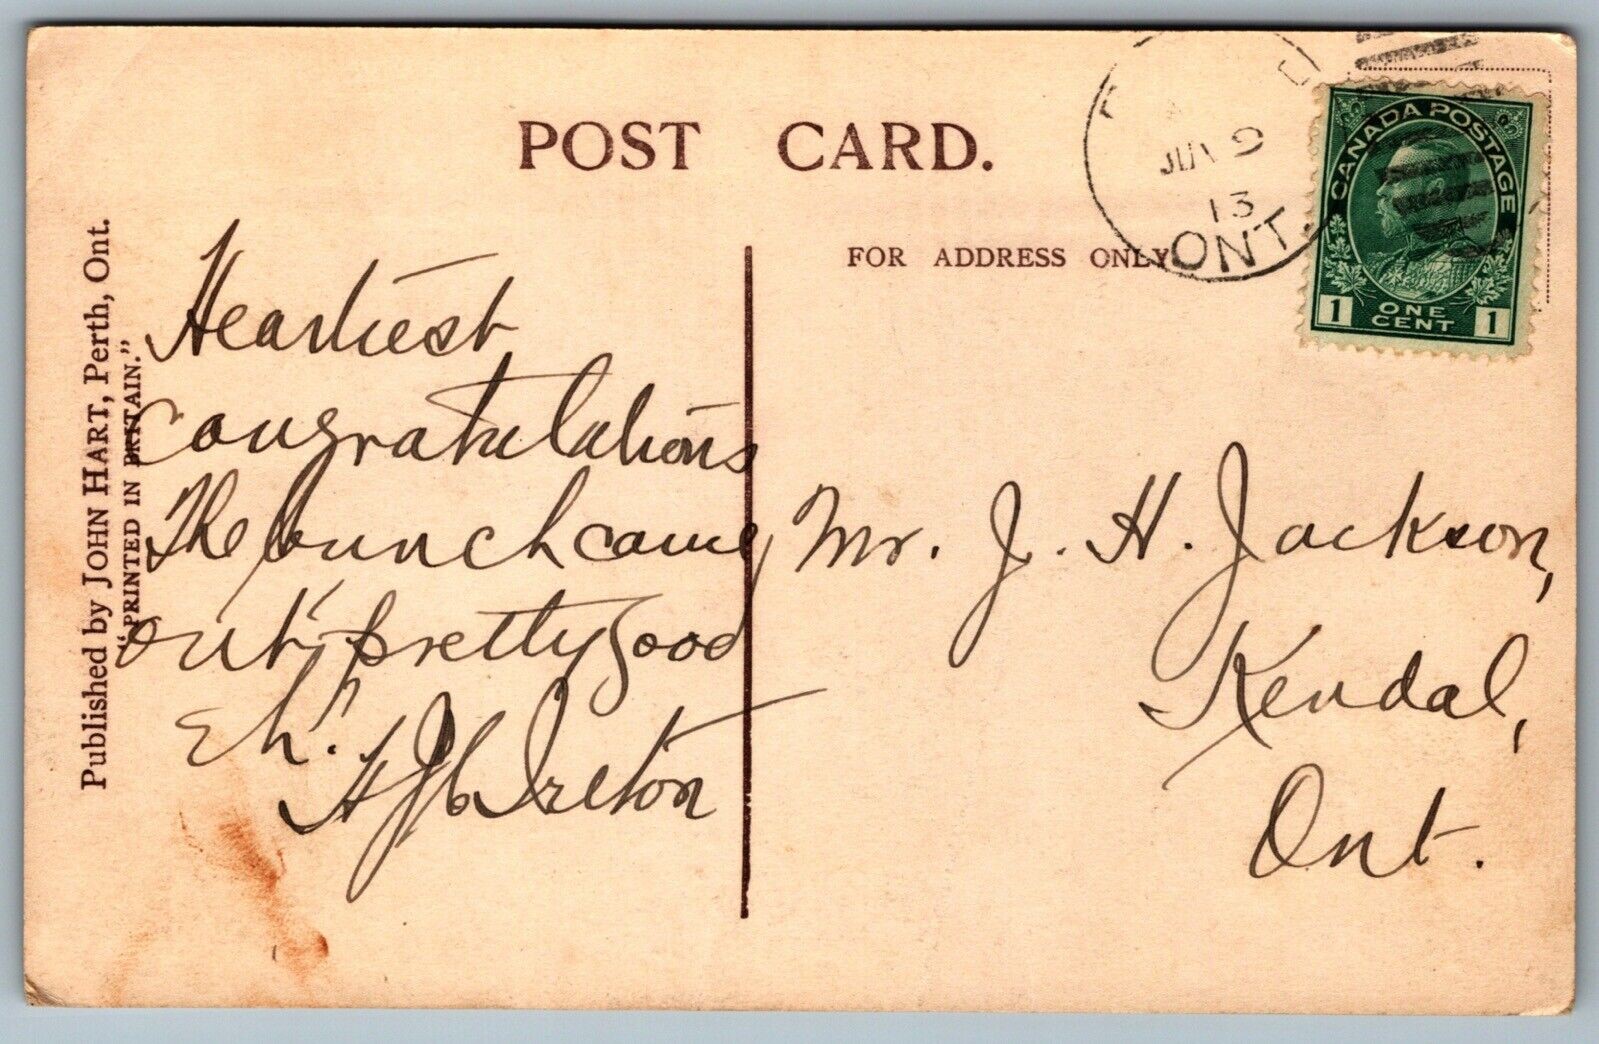 POST CARD.
FOR ADDRESS ONLY
Published by JOHN HART, Perth, Ont.
"PRINTED IN BRITAIN."
Heartiest
Congratulations
The bunch came
out pretty good
Eh.
Ireton
Mr. J. H. Jackson,
Kendal,
Ont.
JUN 9
13
ONT.
CANADA POSTAGE
1 ONE CENT 1